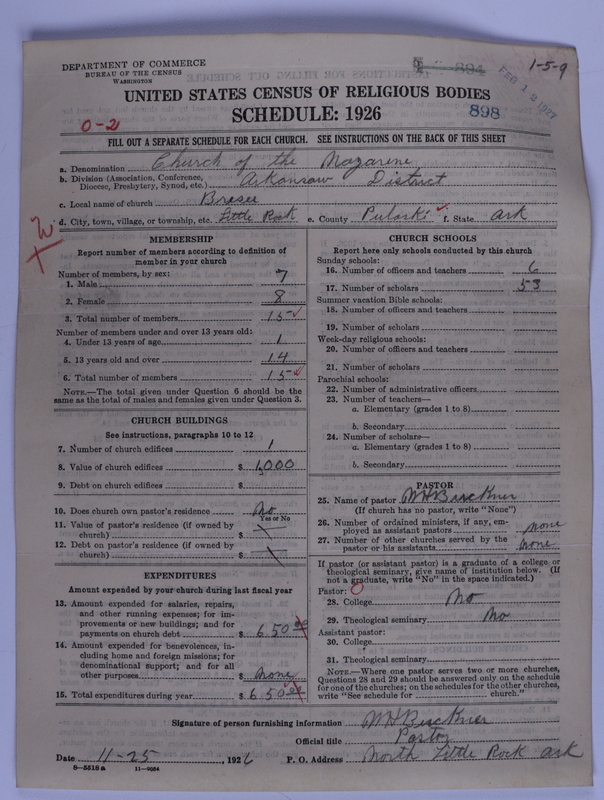 DEPARTMENT OF COMMERCE
BUREAU OF THE CENSUS
WASHINGTON
894
1-5-9
FEB 12 1927
UNITED STATES CENSUS OF RELIGIOUS BODIES
SCHEDULE: 1926
898
0-2
FILL OUT A SEPARATE SCHEDULE FOR EACH CHURCH. SEE INSTRUCTIONS ON THE BACK OF THIS SHEET
a. Denomination Church of the Nazarene
b. Division (Association, Conference, Diocese, Presbytery, Synod, etc.) Arkansaw District
c. Local name of church Brasee
d. City, town, village, or township, etc. Little Rock e. County Pulaski f. State Ark
MEMBERSHIP
Report number of members according to definition of
member in your church
Number of members, by sex:
1. Male 7
2. Female 8
3. Total number of members 15
Number of members under and over 13 years old:
4. Under 13 years of age 1
5. 13 years old and over 14
6. Total number of members 15
NOTE.—The total given under Question 6 should be the
same as the total of males and females given under Question 3.
CHURCH BUILDINGS
See instructions, paragraphs 10 to 12
7. Number of church edifices 1
8. Value of church edifices $ 1,000
9. Debt on church edifices $
10. Does church own pastor's residence No
Yes or No
11. Value of pastor's residence (if owned by
church) $
12. Debt on pastor's residence (if owned by
church) $
EXPENDITURES
Amount expended by your church during last fiscal year
13. Amount expended for salaries, repairs,
and other running expenses; for im-
provements or new buildings; and for
payments on church debt $ 650 00
14. Amount expended for benevolences, in-
cluding home and foreign missions; for
denominational support; and for all
other purposes $ None
15. Total expenditures during year $ 650 00
CHURCH SCHOOLS
Report here only schools conducted by this church
Sunday schools:
16. Number of officers and teachers 6
17. Number of scholars 53
Summer vacation Bible schools:
18. Number of officers and teachers
19. Number of scholars
Week-day religious schools:
20. Number of officers and teachers
21. Number of scholars
Parochial schools:
22. Number of administrative officers
23. Number of teachers—
a. Elementary (grades 1 to 8)
b. Secondary
24. Number of scholars—
a. Elementary (grades 1 to 8)
b. Secondary
PASTOR
25. Name of pastor W H
(If church has no pastor, write "None")
26. Number of ordained ministers, if any, em-
ployed as assistant pastors none
27. Number of other churches served by the
pastor or his assistants none
If pastor (or assistant pastor) is a graduate of a college or
theological seminary, give name of institution below. (If
not a graduate, write "No" in the space indicated.)
Pastor: O
28. College No
29. Theological seminary No
Assistant pastor:
30. College
31. Theological seminary
NOTE.—Where one pastor serves two or more churches,
Questions 28 and 29 should be answered only on the schedule
for one of the churches; on the schedules for the other churches,
write "See schedule for church."
Signature of person furnishing information W H
Official title Pastor
Date 11-25, 1926 P. O. Address North Little Rock Ark
8—5518 a 11—9034